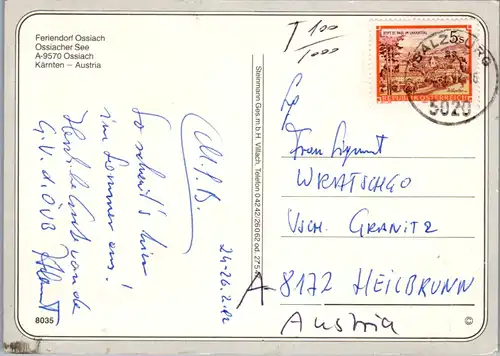 Feriendorf Ossiach
Ossiacher See
A-9570 Ossiach
Kärnten – Austria
T 100/1000
STIFT ST. PAUL IM LAVANTTAL
5S
REPUBLIK ÖSTERREICH
SALZBURG
5020
Steinmann Ges.m.b.H. Villach, Telefon 0 42 42/26 0 62 od. 275
So schaut's hier
im Sommer aus!
Herzliche Grüße von de
G.V. d. ÖVB
24-26.2.
Frau
WRATSCHGO
VSCH. GRANITZ
A-8172 HEILBRUNN
Austria
8035
©